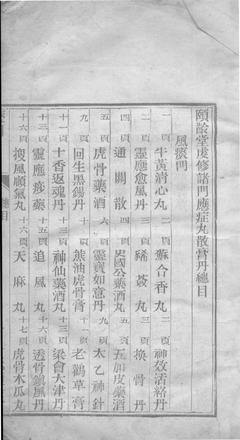 頤齡堂虔修諸門應症丸散膏丹總目
風痰門
一頁 牛黃清心丸 一頁 蘇合香丸 二頁 神效活絡丹
二頁 靈應愈風丹 三頁 豨薟丸 三頁 換骨丹
四頁 通關散 國公藥酒 五頁 五加皮藥酒
五頁 虎骨藥酒 靈寶如意丹 太乙神針
九頁 回生黑錫丹 十頁 熊油虎骨膏 老鸛草膏
十一頁 十香返魂丹 十二頁 神仙藥酒丸 十三頁 梁會大津丹
十三頁 靈應痧藥 十五頁 追風丸 十六頁 透骨鎮風丹
十六頁 搜風順氣丸 十六頁 天麻丸 十七頁 虎骨木瓜丸